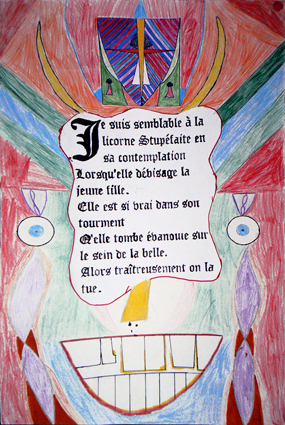 Je suis semblable à la
licorne Stupéfaite en
sa contemplation
Lorsqu'elle dévisage la
jeune fille.
Elle est si vrai dans son
tourment
Q'elle tombe évanouie sur
le sein de la belle.
Alors traîtreusement on la
tue.